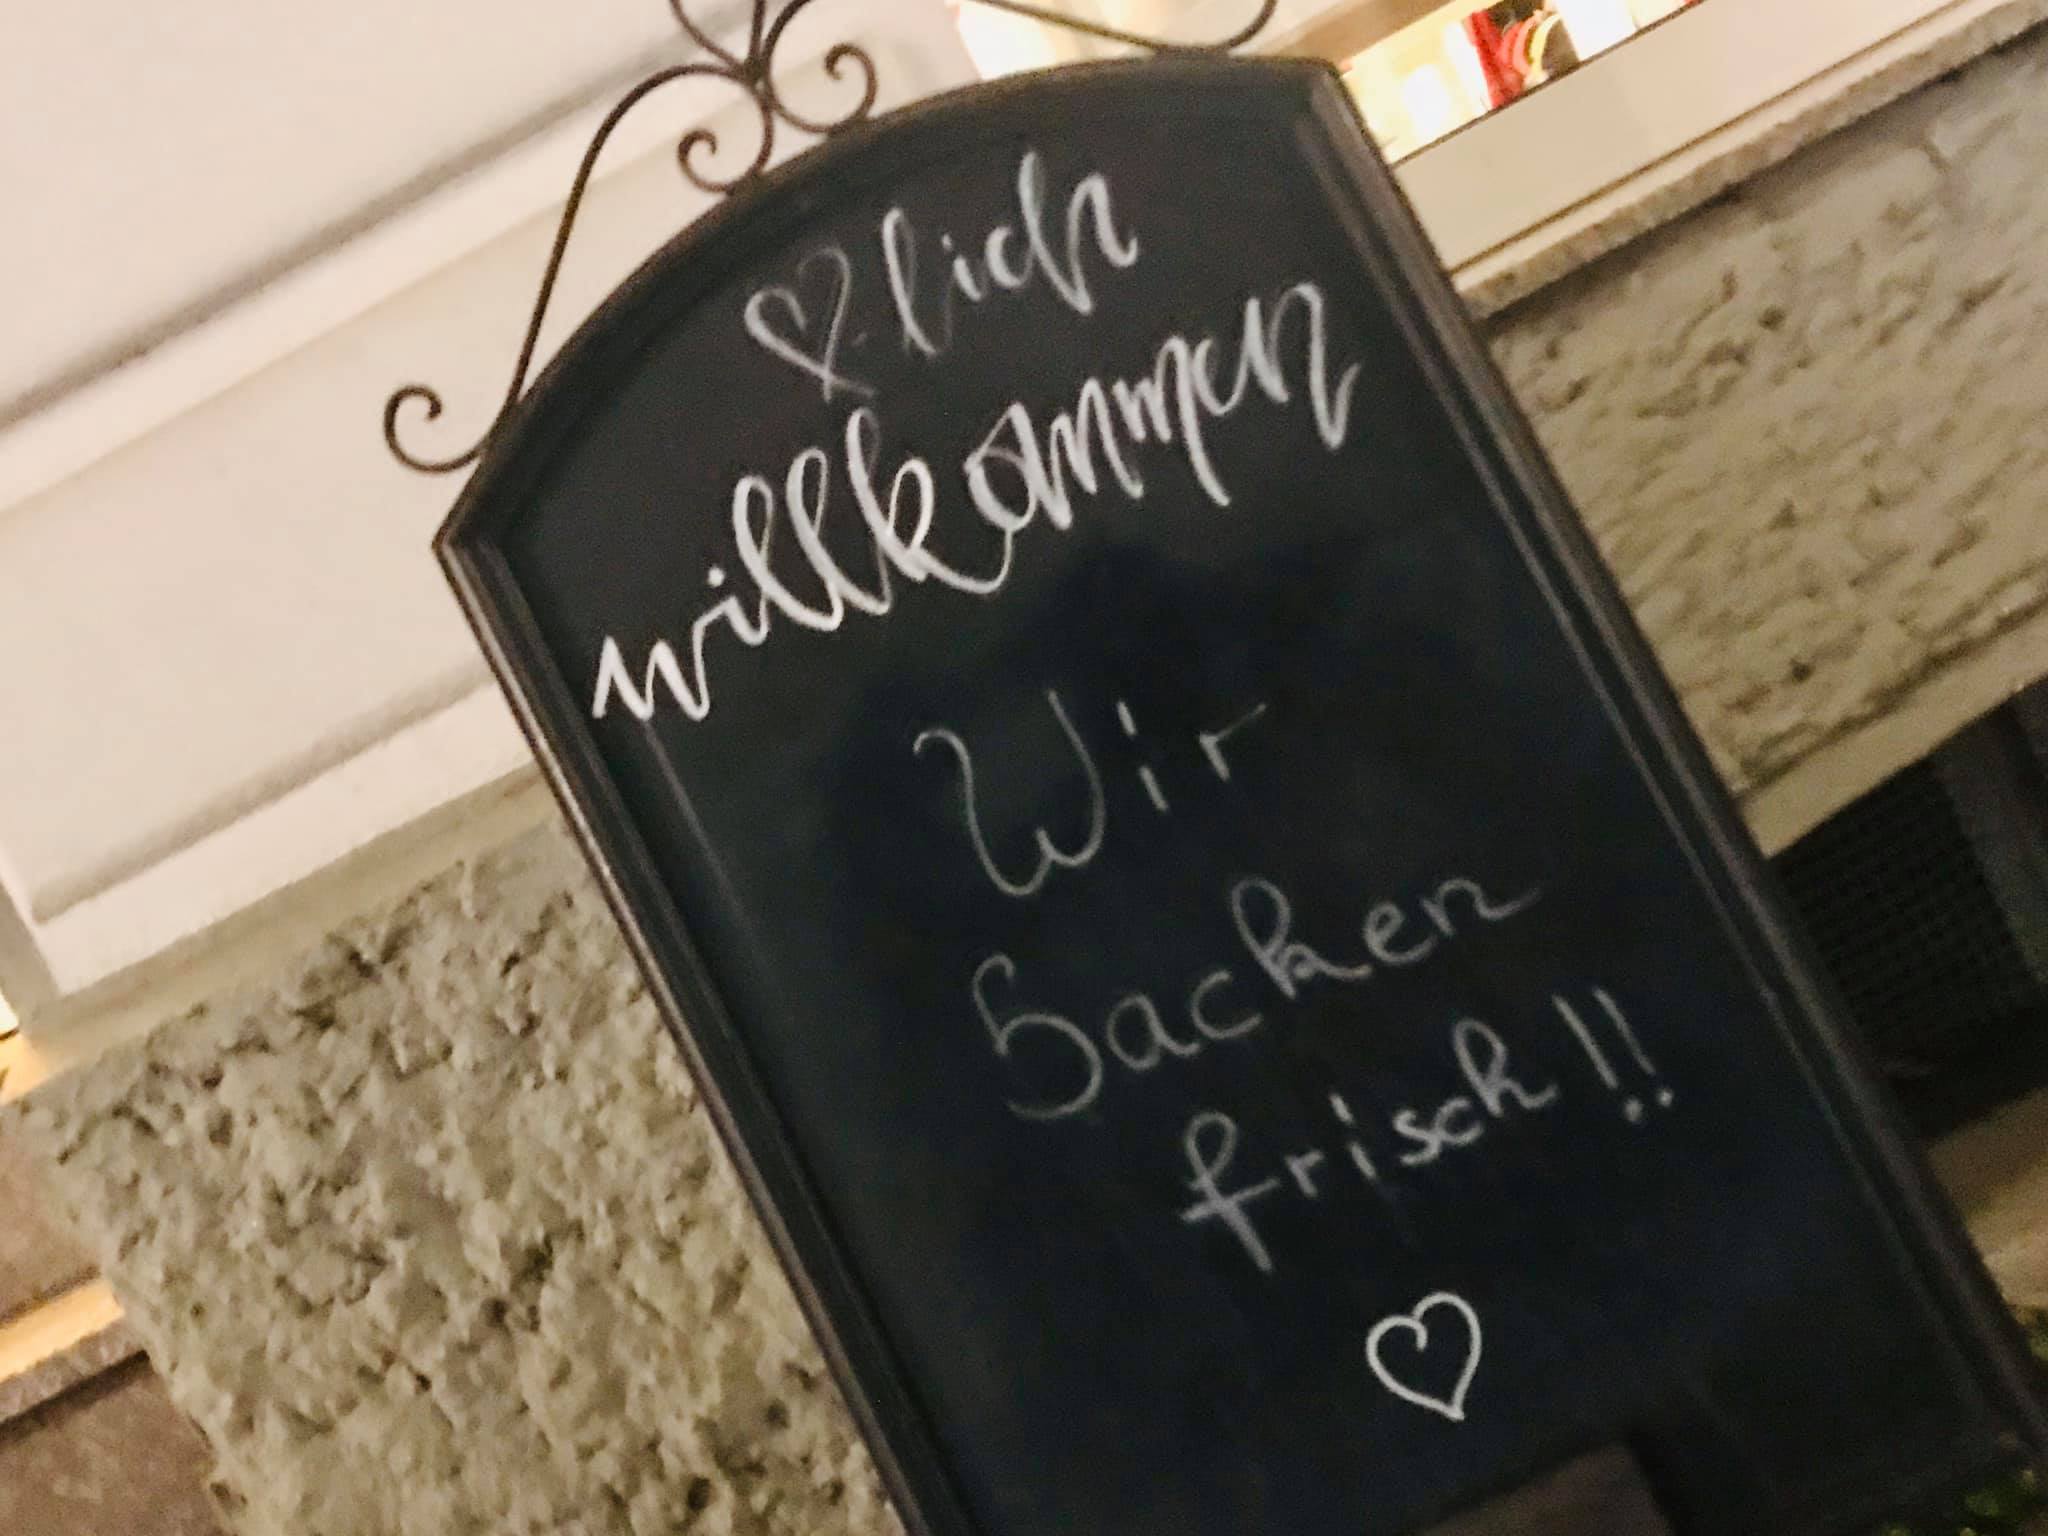 ♡lich
willkommen
Wir
backen
frisch!!
♡